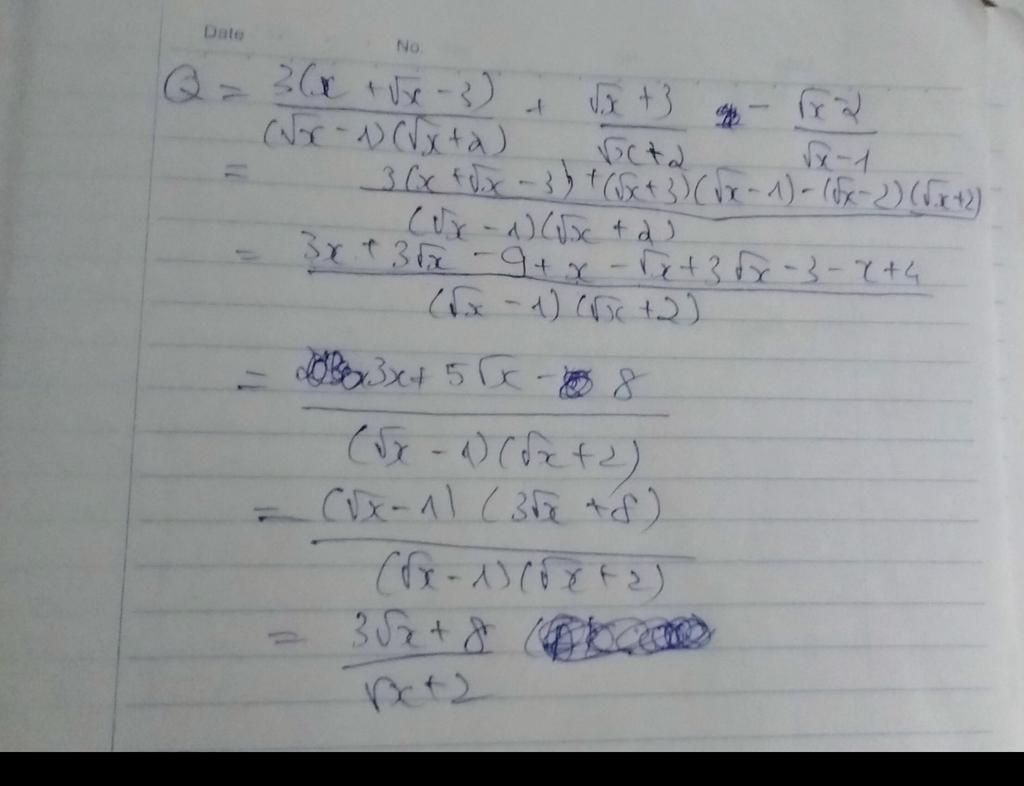 Date No.
Q = 3(x + √x - 3) / (√x - 1)(√x + 2) + √x + 3 / √x + 2 - √x - 2 / √x - 1
= 3(x + √x - 3) + (√x + 3)(√x - 1) - (√x - 2)(√x + 2) / (√x - 1)(√x + 2)
= 3x + 3√x - 9 + x - √x + 3√x - 3 - x + 4 / (√x - 1)(√x + 2)
= 3x + 5√x - 8 / (√x - 1)(√x + 2)
= (√x - 1)(3√x + 8) / (√x - 1)(√x + 2)
= 3√x + 8 / √x + 2